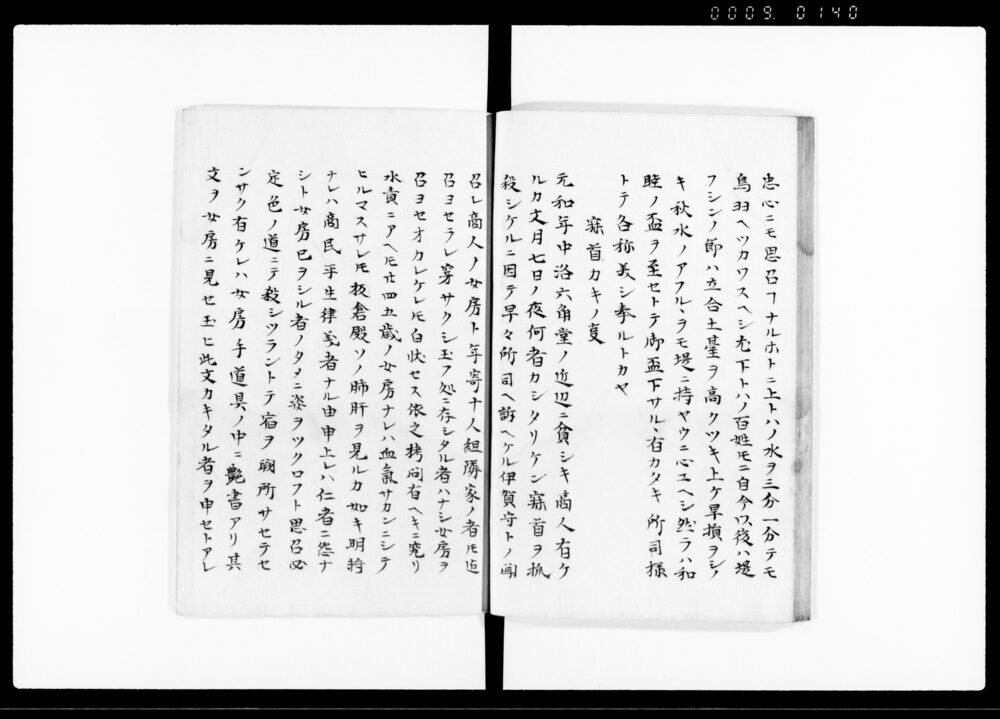 0009. 0140
忠心ニモ思召ヿナルホトニ上トハノ水ヲ三分一分テモ
鳥羽ヘツカワスヘシ尤下トハノ百姓モニ自今以後ハ堤
フシンノ節ハ立合土臺ヲ高クツキ上ケ旱損ヲシノ
キ秋水ノアフルヽヲモ堤ニ持ヤウニ心エヘシ然ラハ和
睦ノ盃ヲ至セトテ御盃下サルヽ有カタキ所司様
トテ各称美シ奉ルトカヤ
寐首カキノ㕝
元和年中洛六角堂ノ近辺ニ貧シキ商人有ケ
ルカ文月七日ノ夜何者カシタリケン寐首ヲ掻
殺シケルニ因テ早々所司ヘ訴ヘケル伊賀守トノ聞
召レ商人ノ女房ト年寄十人組隣家ノ者ノ𪜈迄
召ヨセラレ穿サクシ玉フ処ニ存シタル者ハナシ女房ヲ
召ヨセオカレケレ𪜈白状セス依之拷問有ヘキニ究リ
水責ニアヘ𪜈廿四五歳ノ女房ナレハ血氣サカンニシテ
ヒルマスサレ𪜈板倉殿ソノ肺肝ヲ見ルカ如キ明將
ナレハ商民平生律義者ナル由申上レハ仁者ニ怨ナ
シト女房己ヲシル者ノタメニ姿ヲツクロフト思召必
定色ノ道ニテ殺シツラントテ宿ヲ闕所サセテセ
ンサク有ケレハ女房手道具ノ中ニ艶書アリ其
文ヲ女房ニ見セ玉ヒ此文カキタル者ヲ申セトアレ